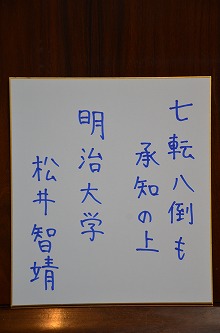 七転八倒も
承知の上
明治大学
松井智靖